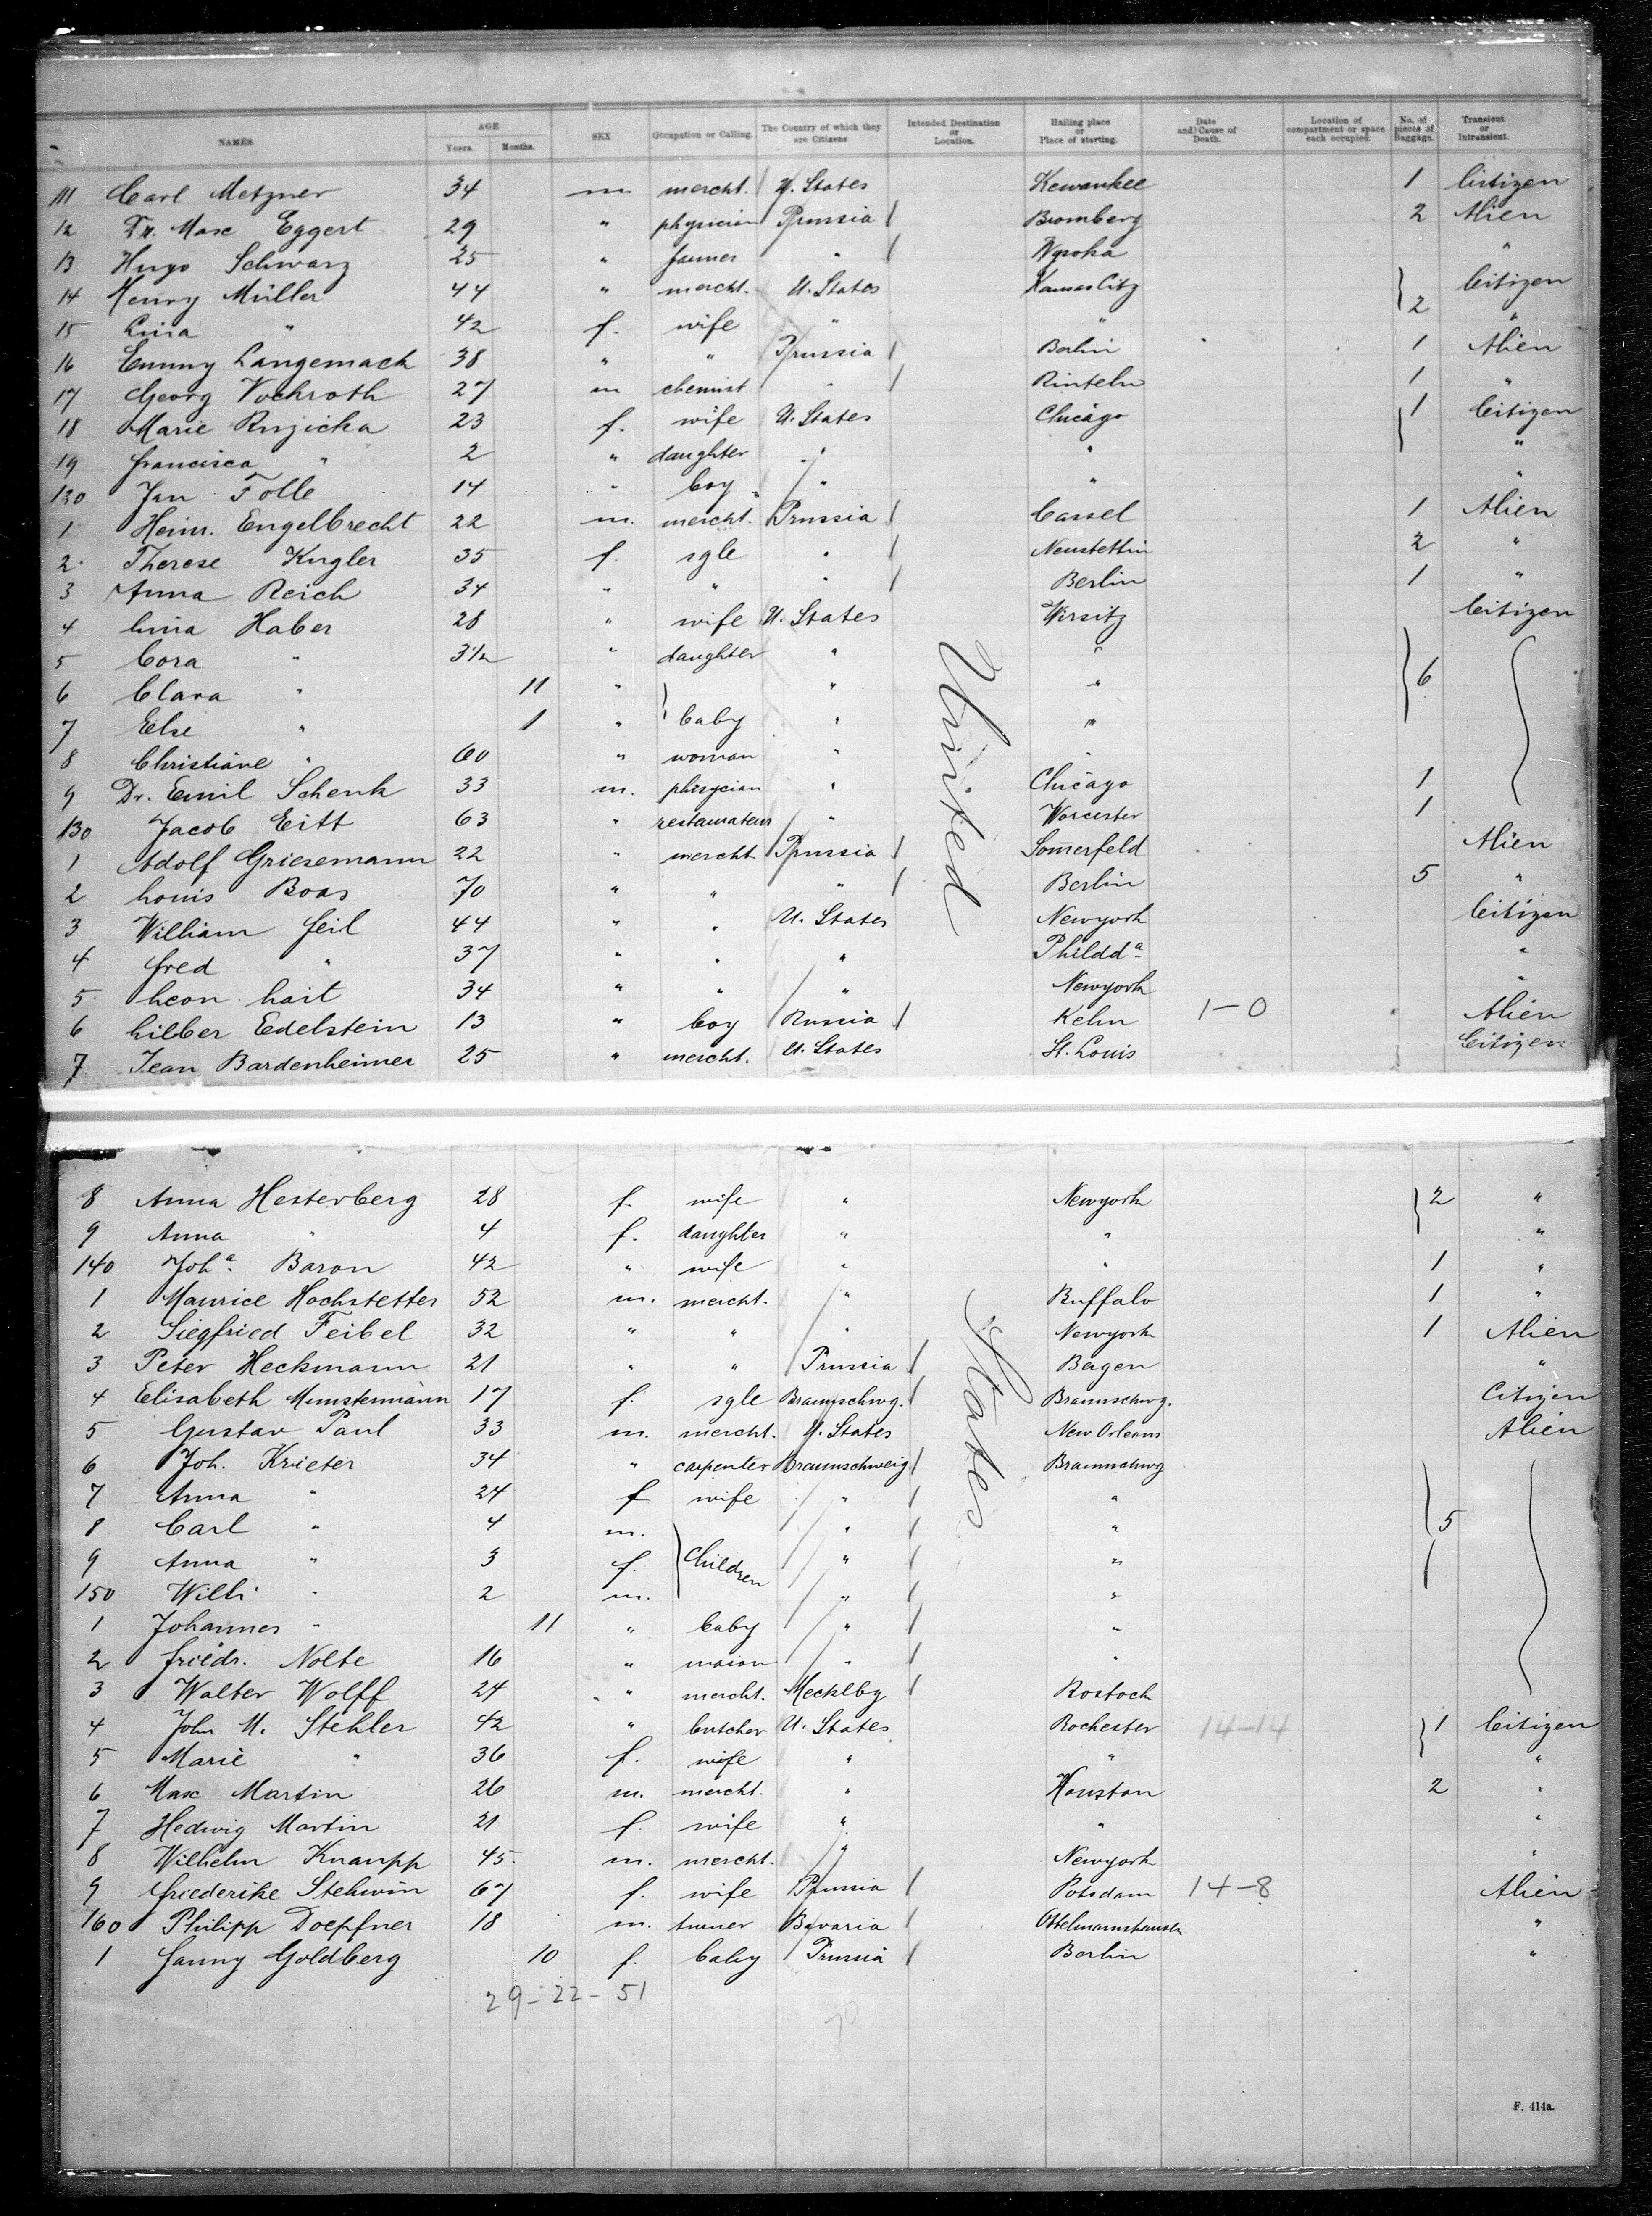 NAMES. AGE Years. Months. SEX Occupation or Calling. The Country of which they are Citizens Intended Destination or Location. Hailing place or Place of starting. Date and Cause of Death. Location of compartment or space each occupied. No. of pieces of Baggage. Transient or Intransient.
111 Carl Metzner 34 m mercht. U. States Kewankee 1 Citizen
12 Dr. Max Eggert 29 " physician Prussia Bromberg 2 Alien
13 Hugo Schwarz 25 " farmer " Wysoka "
14 Henry Müller 44 " mercht. U. States Kansas City 2 Citizen
15 Lina " 42 f. wife " " "
16 Emmy Langemach 38 " " Prussia Berlin 1 Alien
17 Georg Vockroth 27 m chemist " Rinteln 1 "
18 Marie Ruzicka 23 f. wife U. States Chicago 1 Citizen
19 Francisca " 2 " daughter " " "
120 Jan Folle 14 " boy " " "
1 Heinr. Engelbrecht 22 m. mercht. Prussia Cassel 1 Alien
2 Therese Kugler 35 f. sgle " Neustettin 2 "
3 Anna Reich 34 " " " Berlin 1 "
4 Lina Haber 28 " wife U. States Wirsitz Citizen
5 Cora " 3½ " daughter " "
6 Clara " 11 " " " 6
7 Else " 1 " baby " "
8 Christiane " 60 " woman " "
9 Dr. Emil Schenk 33 m. phisycian " Chicago 1
130 Jacob Eitt 63 " restaurateur " Worcester 1
1 Adolf Griesemann 22 " mercht Prussia Somerfeld Alien
2 Louis Boas 70 " " " Berlin 5 "
3 William Feil 44 " " U. States Newyork Citizen
4 Fred " 37 " " " Philddª "
5 Leon Lait 34 " " " Newyork "
6 Lilber Edelstein 13 " boy Russia Kelm 1-0 Alien
7 Jean Bardenheimer 25 " mercht. U. States St. Louis Citizen
United
8 Anna Hesterberg 28 f. wife " Newyork 2 "
9 Anna " 4 f. daughter " " "
140 Johª. Baron 42 " wife " " 1 "
1 Maurice Hochstetter 52 m. mercht. " Buffalo 1 "
2 Siegfried Feibel 32 " " " Newyork 1 Alien
3 Peter Heckmann 21 " " Prussia Bergen "
4 Elisabeth Munstermann 17 f. sgle Braunschwg. Braunschwg. Citizen
5 Gustav Paul 33 m. mercht. U. States New Orleans Alien
6 Joh. Krieter 34 " carpenter Braunschweig Braunschwg
7 Anna " 24 f wife " "
8 Carl " 4 m. " " 5
9 Anna " 3 f. Children " "
150 Willi " 2 m. " "
1 Johannes " 11 " baby " "
2 Friedr. Nolte 16 " mason " "
3 Walter Wolff 24 " mercht. Mecklbg Rostock
4 John M. Stehler 42 " butcher U. States Rochester 14-14 1 Citizen
5 Marie " 36 f. wife " " "
6 Max Martin 26 m. mercht. " Houston 2 "
7 Hedwig Martin 21 f. wife " " "
8 Wilhelm Knaupp 45 m. mercht. " Newyork "
9 Friederike Stehwin 67 f. wife Prussia Potsdam 14-8 Alien
160 Philipp Doepfner 18 m. turner Bavaria Ottelmannshausen "
1 Fanny Goldberg 10 f. baby Prussia Berlin "
States
29-22-51
F. 414a.